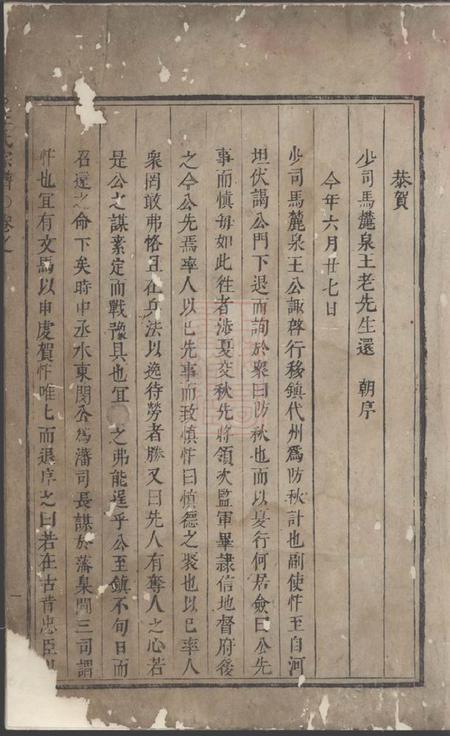 恭賀
少司馬麓泉王老先生還　朝序
今年六月廿七日
少司馬麓泉王公諏啓行移鎮代州爲防秋計也副使忤至自河
坦伏謁公門下退而詢於衆曰防秋也而以夏行何居僉曰公先
事而慎毎如此徃者涉夏交秋先將領次監軍畢隷信地督府後
之今公先焉率人以已先事而致慎忤曰慎德之聚也以已率人
衆罔敢弗恪且在兵法以逸待勞者勝又曰先人有奪人之心若
是公之謀素定而戰豫具也宜　之弗能逞乎公至鎮不旬日而
召還之命下矣時中丞水東閔公爲藩司長謀於藩臬閫三司謂
忤也宜有文焉以申虔賀忤唯七而退序之曰若在古昔忠臣
氏宗譜　卷之